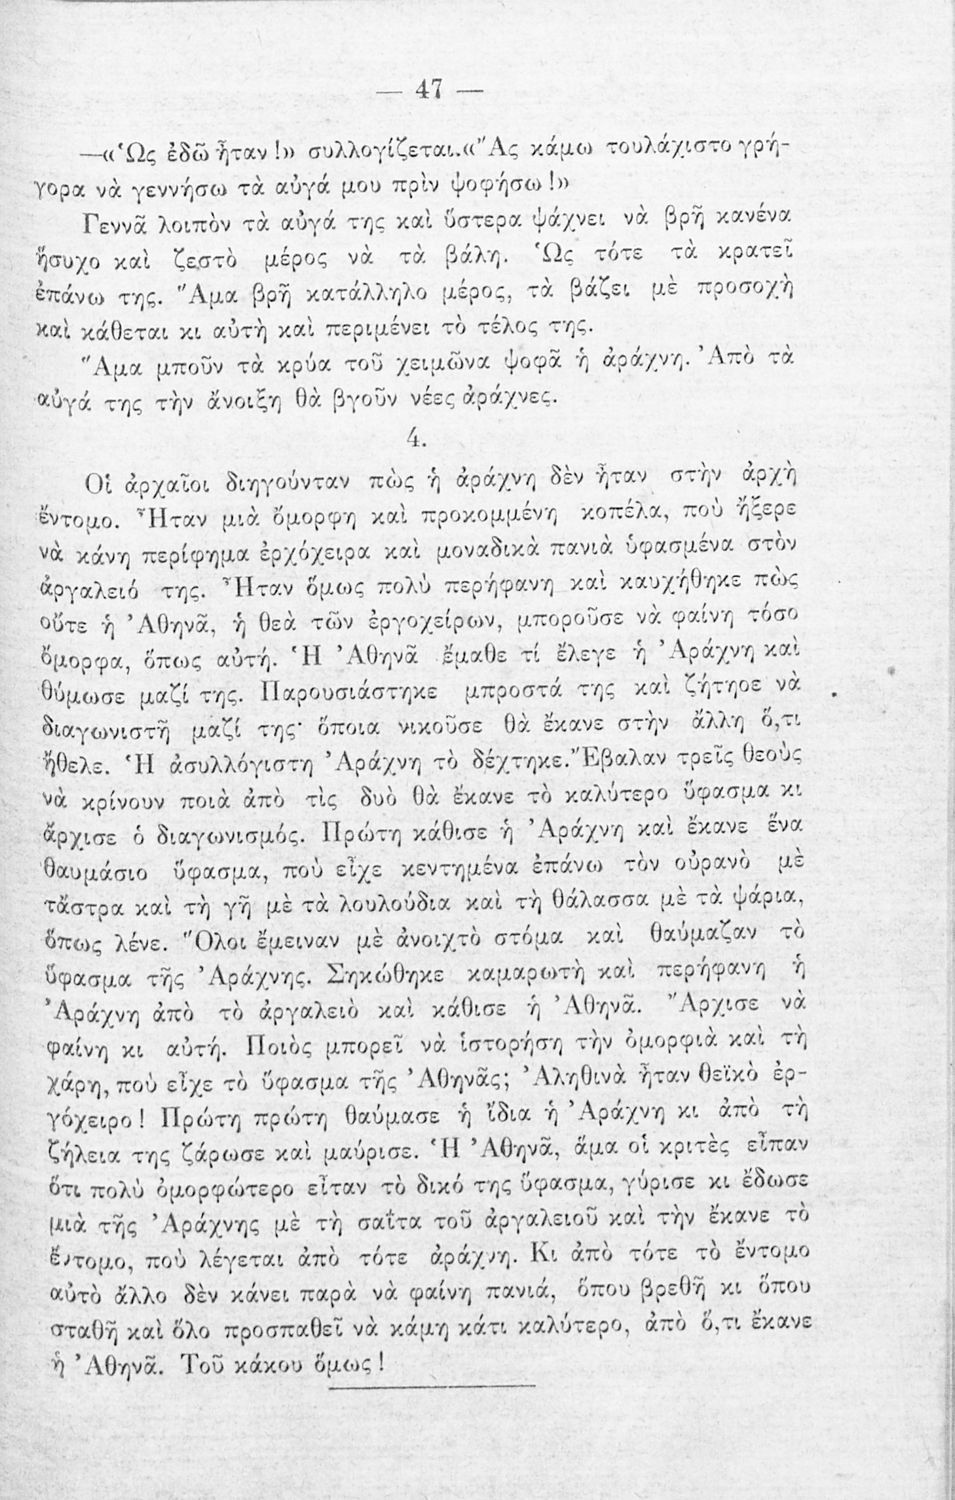 — 47 —
—«Ὡς ἐδῶ ἦταν!» συλλογίζεται.«Ἂς κάμω τουλάχιστο γρή-
γορα νὰ γεννήσω τὰ αὐγά μου πρὶν ψοφήσω!»
Γεννᾶ λοιπὸν τὰ αὐγά της καὶ ὕστερα ψάχνει νὰ βρῆ κανένα
ἥσυχο καὶ ζεστὸ μέρος νὰ τὰ βάλη. Ὡς τότε τὰ κρατεῖ
ἐπάνω της. Ἅμα βρῆ κατάλληλο μέρος, τὰ βάζει μὲ προσοχὴ
καὶ κάθεται κι αὐτὴ καὶ περιμένει τὸ τέλος της.
Ἅμα μποῦν τὰ κρύα τοῦ χειμῶνα ψοφᾶ ἡ ἀράχνη. Ἀπὸ τὰ
αὐγά της τὴν ἄνοιξη θὰ βγοῦν νέες ἀράχνες.
4.
Οἱ ἀρχαῖοι διηγούνταν πὼς ἡ ἀράχνη δὲν ἦταν στὴν ἀρχὴ
ἔντομο. Ἦταν μιὰ ὄμορφη καὶ προκομμένη κοπέλα, ποὺ ἤξερε
νὰ κάνη περίφημα ἐρχόχειρα καὶ μοναδικὰ πανιὰ ὑφασμένα στὸν
ἀργαλειό της. Ἦταν ὅμως πολὺ περήφανη καὶ καυχήθηκε πὼς
οὔτε ἡ Ἀθηνᾶ, ἡ θεὰ τῶν ἐργοχείρων, μποροῦσε νὰ φαίνη τόσο
ὄμορφα, ὅπως αὐτή. Ἡ Ἀθηνᾶ ἔμαθε τί ἔλεγε ἡ Ἀράχνη καὶ
θύμωσε μαζί της. Παρουσιάστηκε μπροστά της καὶ ζήτησε νὰ
διαγωνιστῆ μαζί της· ὅποια νικοῦσε θὰ ἔκανε στὴν ἄλλη ὅ,τι
ἤθελε. Ἡ ἀσυλλόγιστη Ἀράχνη τὸ δέχτηκε. Ἔβαλαν τρεῖς θεοὺς
νὰ κρίνουν ποιὰ ἀπὸ τὶς δυὸ θὰ ἔκανε τὸ καλύτερο ὕφασμα κι
ἄρχισε ὁ διαγωνισμός. Πρώτη κάθισε ἡ Ἀράχνη καὶ ἔκανε ἕνα
θαυμάσιο ὕφασμα, ποὺ εἶχε κεντημένα ἐπάνω τὸν οὐρανὸ μὲ
τἄστρα καὶ τὴ γῆ μὲ τὰ λουλούδια καὶ τὴ θάλασσα μὲ τὰ ψάρια,
ὅπως λένε. Ὅλοι ἔμειναν μὲ ἀνοιχτὸ στόμα καὶ θαύμαζαν τὸ
ὕφασμα τῆς Ἀράχνης. Σηκώθηκε καμαρωτὴ καὶ περήφανη ἡ
Ἀράχνη ἀπὸ τὸ ἀργαλειὸ καὶ κάθισε ἡ Ἀθηνᾶ. Ἄρχισε νὰ
φαίνη κι αὐτή. Ποιὸς μπορεῖ νὰ ἱστορήση τὴν ὀμορφιὰ καὶ τὴ
χάρη, ποὺ εἶχε τὸ ὕφασμα τῆς Ἀθηνᾶς; Ἀληθινὰ ἦταν θεϊκὸ ἐρ-
γόχειρο! Πρώτη πρώτη θαύμασε ἡ ἴδια ἡ Ἀράχνη κι ἀπὸ τὴ
ζήλεια της ζάρωσε καὶ μαύρισε. Ἡ Ἀθηνᾶ, ἅμα οἱ κριτὲς εἶπαν
ὅτι πολὺ ὀμορφώτερο εἶταν τὸ δικό της ὕφασμα, γύρισε κι ἔδωσε
μιὰ τῆς Ἀράχνης μὲ τὴ σαΐτα τοῦ ἀργαλειοῦ καὶ τὴν ἔκανε τὸ
ἔντομο, ποὺ λέγεται ἀπὸ τότε ἀράχνη. Κι ἀπὸ τότε τὸ ἔντομο
αὐτὸ ἄλλο δὲν κάνει παρὰ νὰ φαίνη πανιά, ὅπου βρεθῆ κι ὅπου
σταθῆ καὶ ὅλο προσπαθεῖ νὰ κάμη κάτι καλύτερο, ἀπὸ ὅ,τι ἔκανε
ἡ Ἀθηνᾶ. Τοῦ κάκου ὅμως!